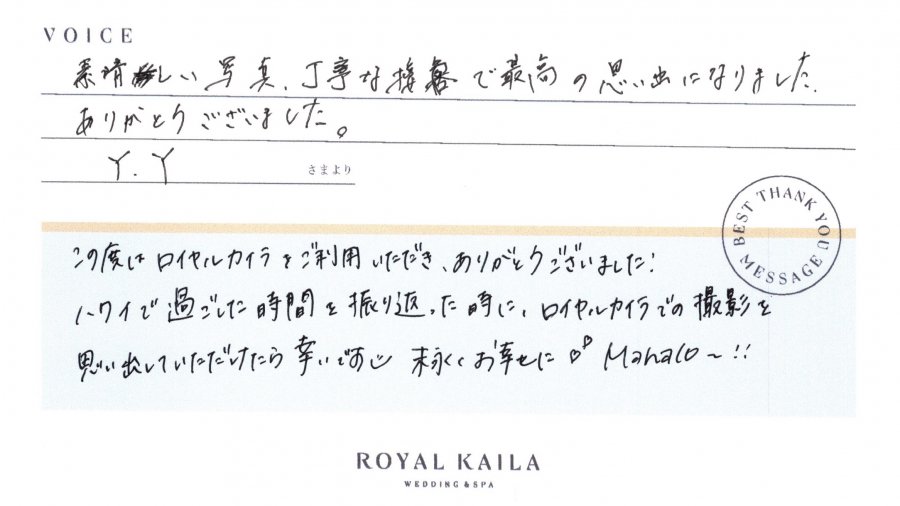 VOICE
素晴しい写真、丁寧な接客で最高の思い出になりました.
ありがとうございました。
Y.Y さまより
BEST THANK YOU MESSAGE
この度はロイヤルカイラをご利用いただき、ありがとうございました!
ハワイで過ごした時間を振り返った時に、ロイヤルカイラでの撮影を
思い出していただけたら幸いです 末永くお幸せに Mahalo~!!
ROYAL KAILA
WEDDING & SPA